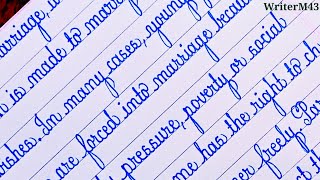 WriterM43
arriage, u
h is made to marr
rishes. In many cases, young
are forced into marriage becau
pressure, poverty or social
me has the right to ch
er freely. Par